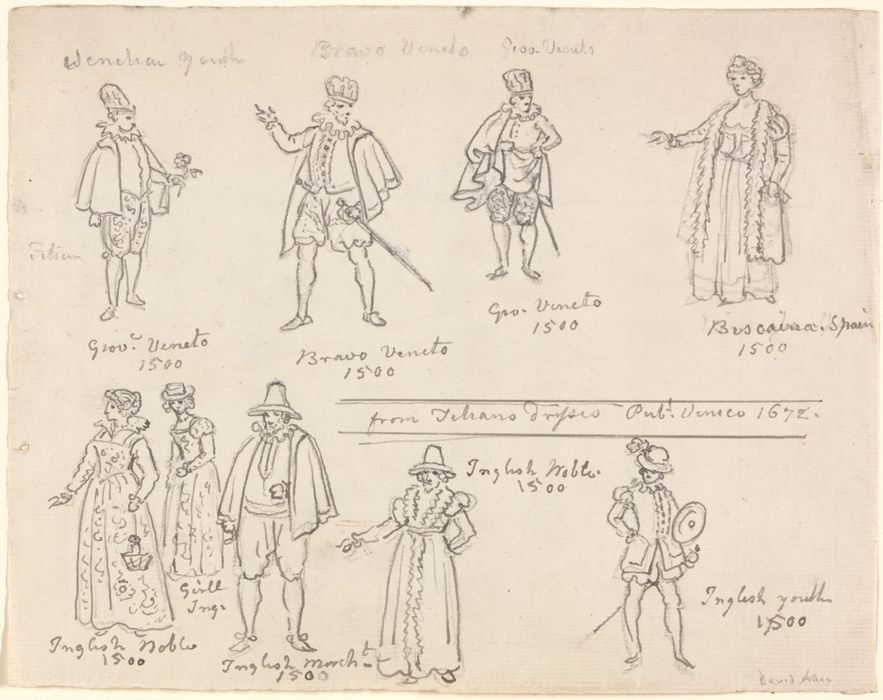 Venetian youth
Bravo Veneto
Giov. Veneto
Titian
Giov.ᵉ Veneto
1500
Bravo Veneto
1500
Gio. Veneto
1500
Biscaina. Spain
1500
from Titians dresses Pub.ᵗ Venice 1672.
Inglish Noblo.
1500
Girll
Ing.
Inglish Noblo
1500
Inglish March.ᵗ
1500
Inglish youth
1500
David